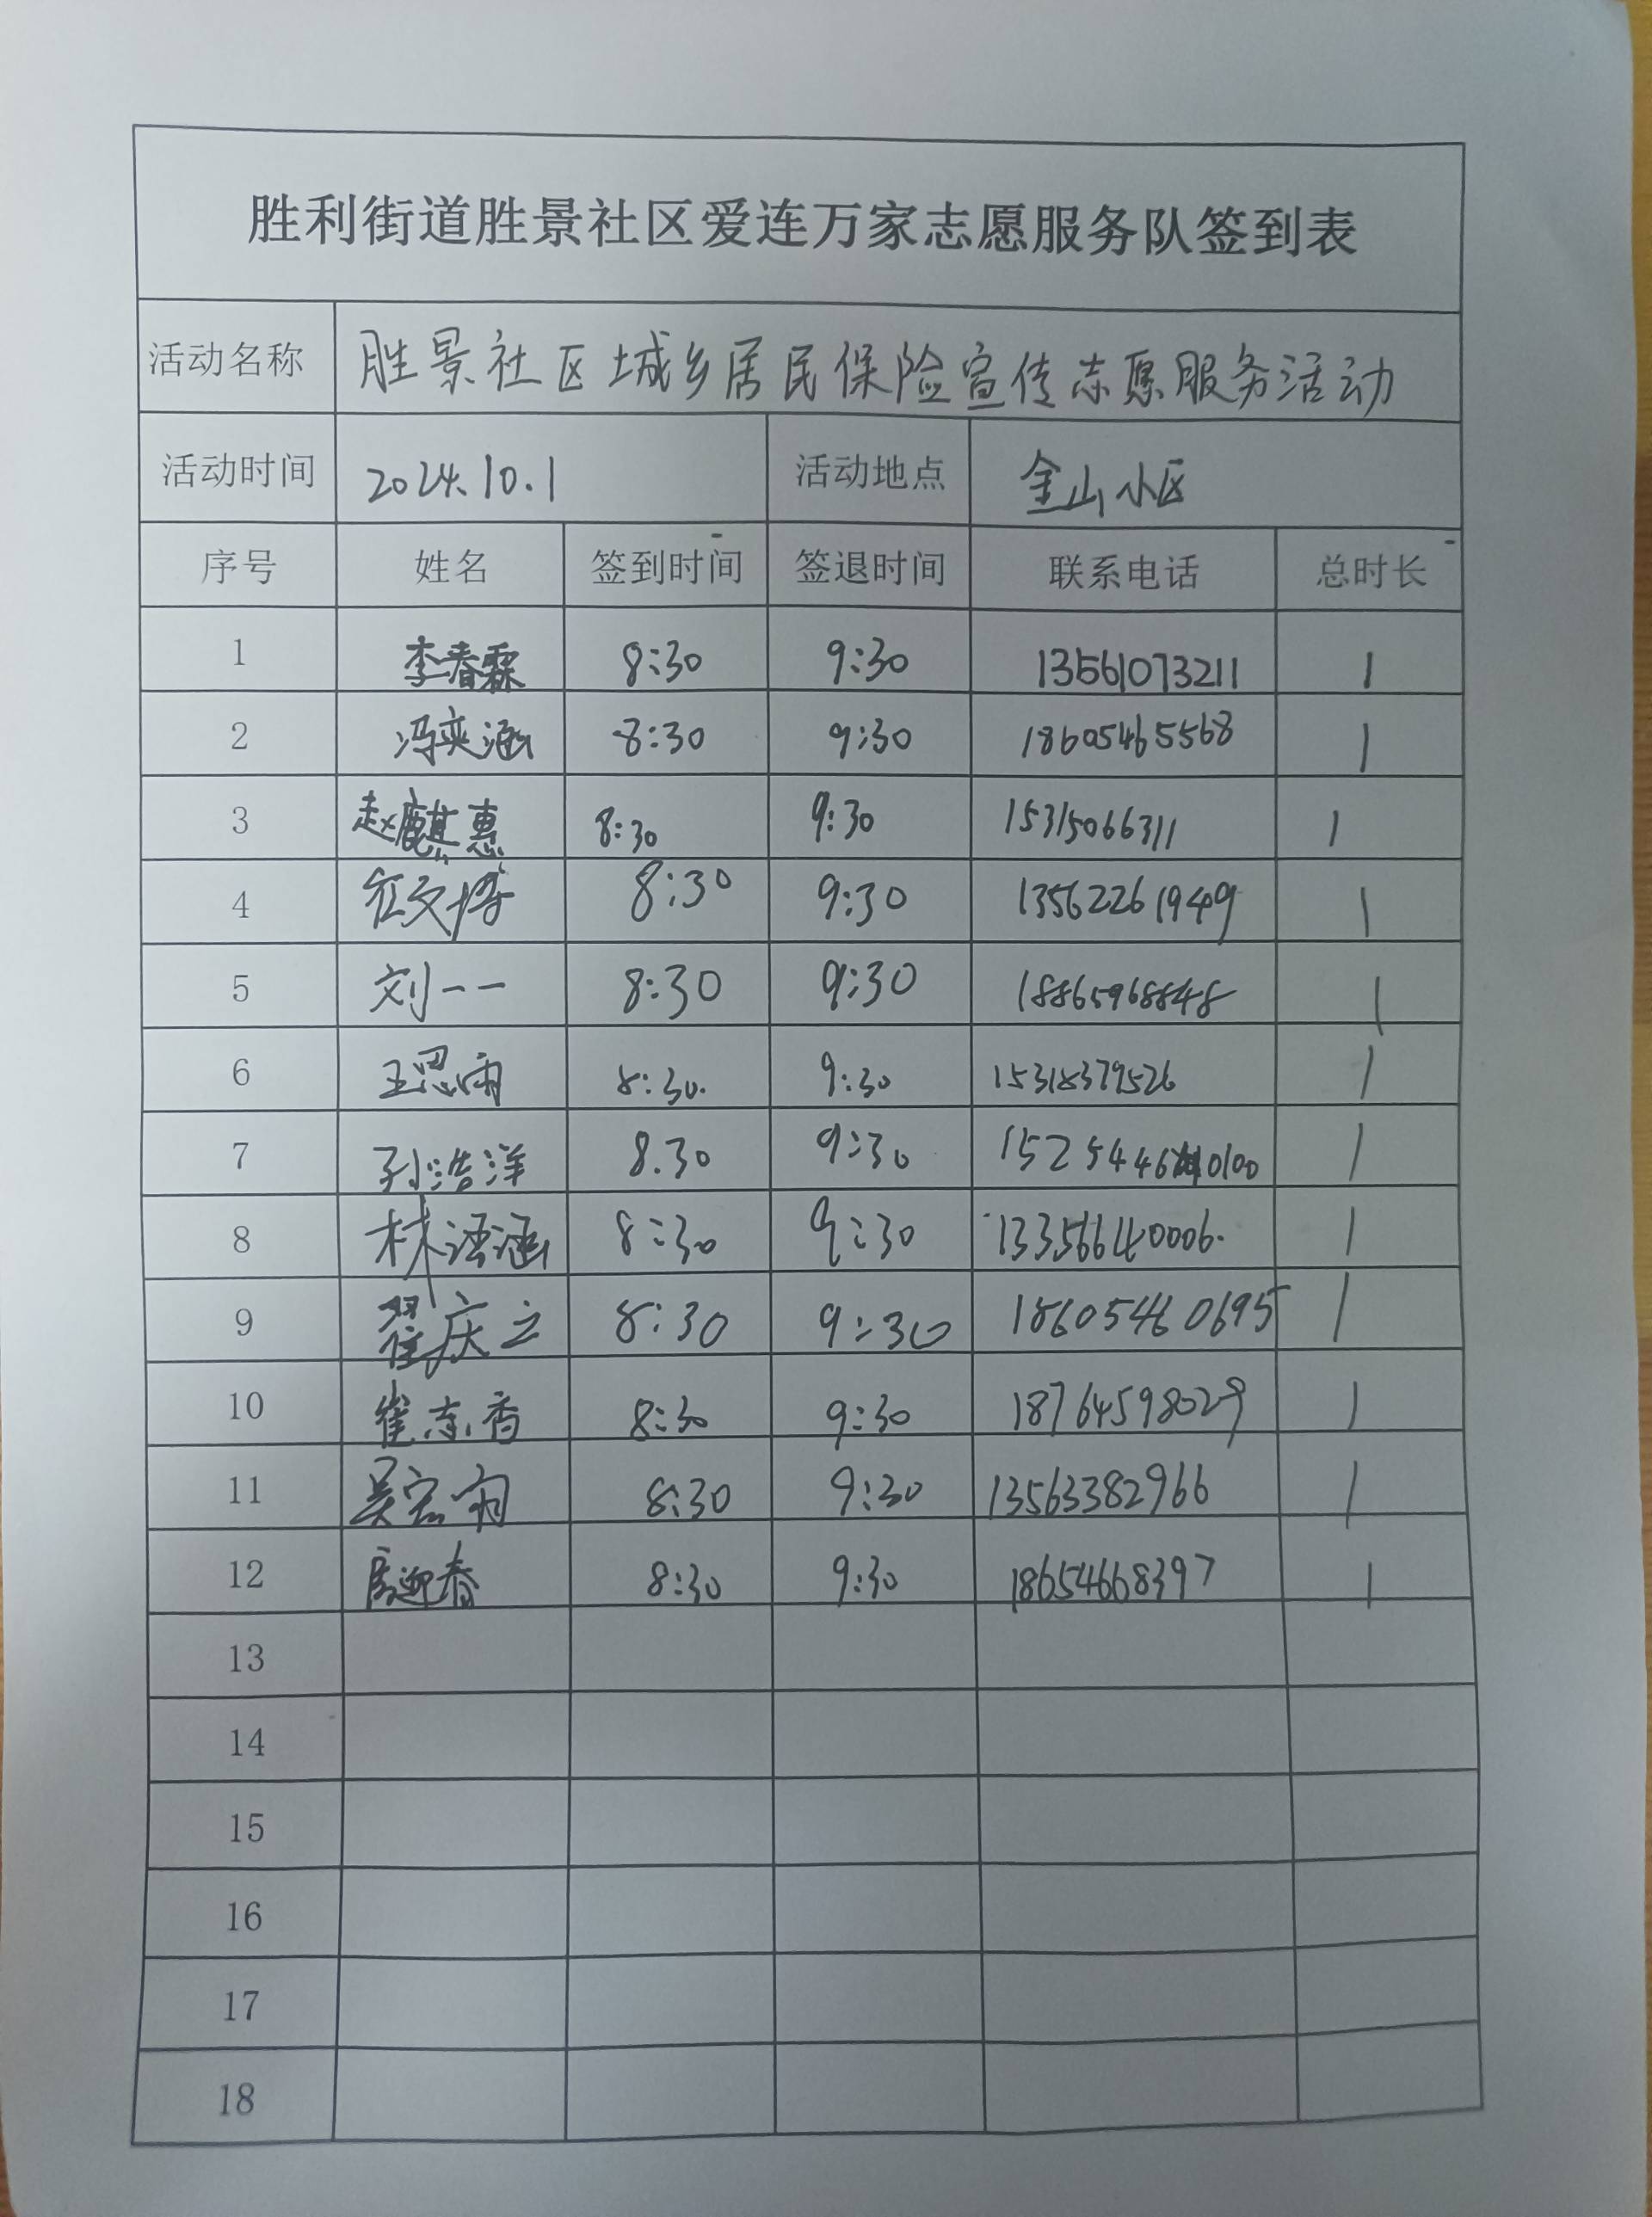 胜利街道胜景社区爱连万家志愿服务队签到表
活动名称 胜景社区城乡居民保险宣传志愿服务活动
活动时间 2024.10.1 活动地点 金山小区
序号 姓名 签到时间 签退时间 联系电话 总时长
1 李春霖 8:30 9:30 13561073211 1
2 冯奕涵 8:30 9:30 18605465568 1
3 赵麒惠 8:30 9:30 15315066311 1
4 文博 8:30 9:30 13562261949 1
5 刘一一 8:30 9:30 18865968848 1
6 王思雨 8:30. 9:30 15318379526 1
7 孙浩洋 8.30 9:30 15254460100 1
8 林语涵 8:30 9:30 13356640006. 1
9 翟庆之 8:30 9:30 18605460695 1
10 崔东香 8:30 9:30 18764598029 1
11 吴宏雨 8:30 9:30 13563382966 1
12 房迎春 8:30 9:30 18654668397 1
13
14
15
16
17
18